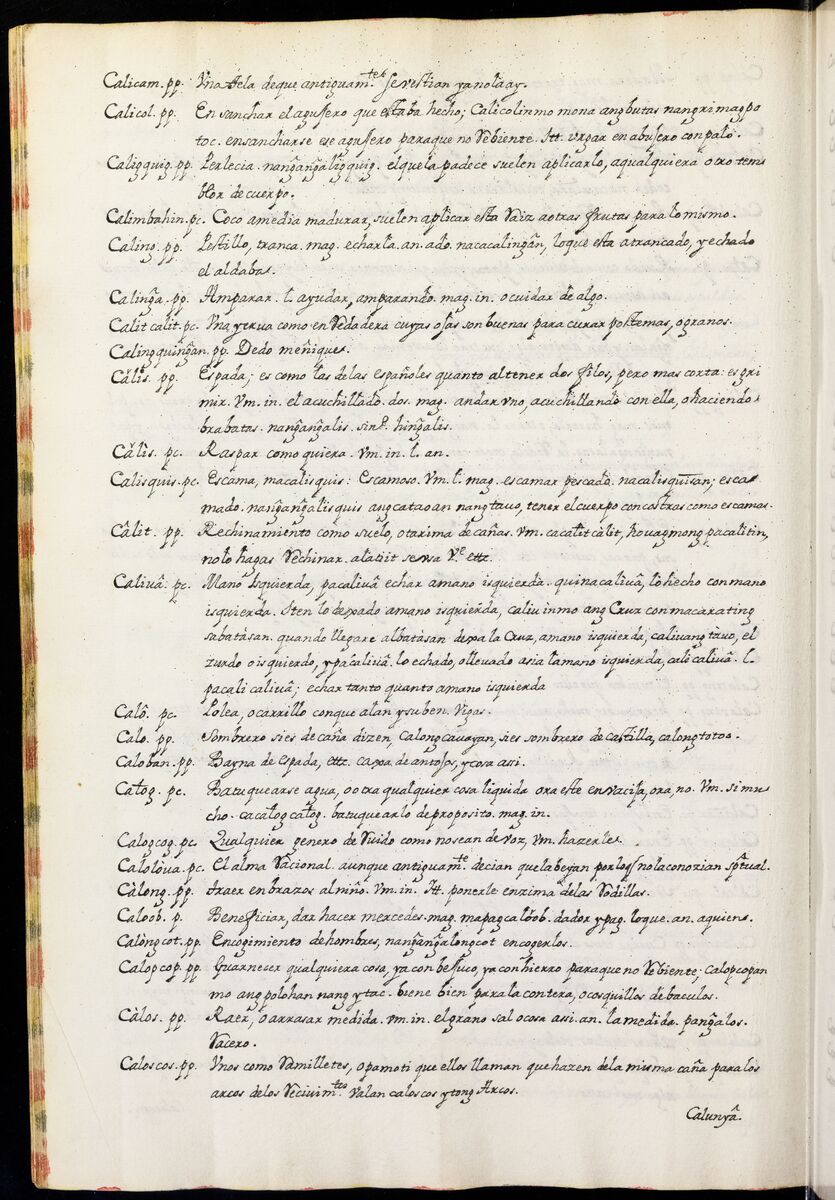 Calicam. pp. Vna tela deque antiguam.tes se vestian ya no la ay.
Calicol. pp. Ensanchar el agussero que estaba hecho; Calicolin mo mona ang butas nang ri magpo
toc. ensancharse ese agussero paraque no Rebiente. Itt. vrgar en abusero con palo.
Caligquig. pp. Perlecia. nangangaligquig. el que la padece suelen aplicarlo, a qualquiera otro tem
blor de cuerpo.
Calimbahin. pc. Coco a media madurar, suelen aplicar esta Raiz a otras frutas para lo mismo.
Caling. pp. Pestillo, tranca. mag. echarla. an. ado. nacacalingãn, lo que esta atrancado, y echado
el aldabas.
Calinga. pp. Amparar. l. ayudar, amparando. mag. in. o cuidar de algo.
Calit calit. pc. Vna yerua como enRedadera cuyas ojas son buenas para curar postemas, o granos.
Calingquingãn. pp. Dedo meñique.
Cǎlis. pp. Espada; es como las de las españoles quanto al tener dos filos, pero mas corta: esgri
mir. Vm. in. el acuchillado. dos. mag. andar vno, acuchillando con ella, o haciendo
brabatas. nangangalis. sin.l hingalis.
Cǎlis. pc. Raspar como quiera. Vm. in. l. an.
Calisquis. pc. Escama, macalisquis: Escamoso. Vm. l. mag. escamar pescado. nacalisquisan; esca
mado. nangangalisquis ang catao an nang tauo, tener el cuerpo con costras como escamas.
Câlit. pp. Rechinamiento como suelo, o tarima de cañas. vm. cacalit càlit, houag mong pacalitin,
no lo hagas Rechinar. alatiit se vsa V.e ettz.
Caliuâ. pc. Mano Isquierda, pacaliuâ echar a mano isquierda. quinacaliuâ, lo hecho con mano
isquierda. Iten lo dexado a mano isquierda, caliuin mo ang Cruz con macarating
sabatàsan. quando llegare al batàsan dexa la Cruz, a mano isquierda, caliuang tàuo, el
zurdo o isquierdo, y pacaliuâ. lo echado, o lleuado asia la mano isquierda, cali caliuâ. l.
pacali caliuâ; echar tanto quanto a mano isquierda
Calô. pc. Polea, o carrillo conque atan y suben. Vigas.
Calo. pp. Sombrero si es de caña dizen, Calong cauayan, si es sombrero de castilla, calong totoo.
Caloban. pp. Bayna de espada, ettz. caxa de antojos, y cosa assi.
Calog. pc. Batuquearse agua, o otra qualquier cosa liquida ora este en vacija, ora, no. Vm. si mu
cho. cacalog calog. batuquearlo de proposito. mag. in.
Calogcog. pc. Qualquier genero de Ruido como no sean de voz, vm. hazerle.
Calolòua. pc. El alma Racional. aunque antiguam.te decian que la beyan por los no la conozian sptual.
Càlong. pp. traer en brazos al niño. Vm. in. Itt. ponerle enzima de las Rodillas.
Caloób. p. Beneficiar, dar hacer mercedes. mag. mapagcalóob. dador y pag. lo que. an. a quien.
Calòngcot. pp. Encogimiento de hombres, nangangalongcot encogerlos.
Calopcop. pp. Guarnecer qualquiera cosa, ya con bejuco, ya con hierro para que no Rebiente; calopcopan
mo ang polohan nang ytac. biene bien para la contera, o cosquillos de baculos.
Càlos. pp. Raer, o arrasar medida. vm. in. el grano sal o cosa asi. an. la medida. pangalos.
Racero.
Caloscos. pp. Vnos como Ramilletes, o pamoti que ellos llaman que hazen de la misma caña para los
arcos de los Reciuim.tos Valan caloscos ytong Arcos.
Calunyâ.